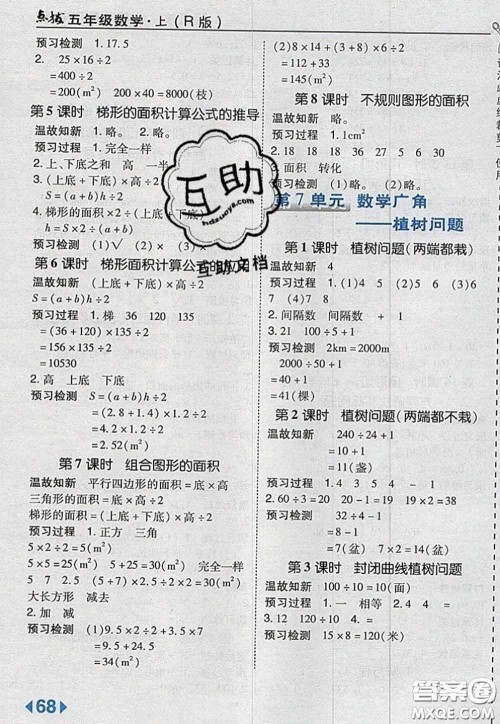 点拨 五年级数学·上(R版)
预习检测 1. 17.5
2. 25×16÷2
=400÷2
=200(m²) 200×40=8000(枝)
第5课时 梯形的面积计算公式的推导
温故知新 1. 略。 2. 略。
预习过程 1. 完全一样
2. 上、下底之和 高 一半
3. (上底+下底)×高÷2
4. 梯形的面积=(上底+下底)×高÷2
预习检测 (1)✓ (2)✓
第6课时 梯形面积计算公式的应用
温故知新 (上底+下底)×高÷2
S=(a+b)h÷2
预习过程 1. 梯 36 120 135
(36+120)×135÷2
=156×135÷2
=10530
2. 高 上底 下底
预习检测 S=(a+b)h÷2
=(2.8+1.4)×1.2÷2
=4.2×1.2÷2
=2.52(m²)
第7课时 组合图形的面积
温故知新 平行四边形的面积=底×高
三角形的面积=底×高÷2
梯形的面积=(上底+下底)×高÷2
预习过程 1. 正方 三角
5×2÷2=5(m²) 5×5=25(m²)
25+5=30(m²) 完全一样
5 7 2.5 (5+7)×2.5÷2×2=30(m²)
大长方形 减去
2. 加 减
预习检测 (1)9.5×2÷2+7×3.5
=9.5+24.5
=34(m²)
68
(2)8×14+(8+14)×3÷2
=112+33
=145(m²)
第8课时 不规则图形的面积
温故知新 略。
预习过程 1. 1cm²
2. 18 18 36 27 5 6 30
3. 面积 转化
预习检测 略。
第7单元 数学广角
——植树问题
第1课时 植树问题(两端都栽)
温故知新 4
预习过程 1. (1)4 (2)5 (3)6
(4)7 8
2. 间隔数 间隔数 + 1
3. 21 100÷5+1
预习检测 2km=2000m
2000÷50+1
=40+1
=41(棵)
第2课时 植树问题(两端都不栽)
温故知新 240÷24+1
=10+1
=11(盏)
2. 60÷3=20 20-1=19
预习检测 32÷4-1
=8-1
=7(盆)
第3课时 封闭曲线植树问题
温故知新 100÷10=10(面)
预习过程 1. 一 相等 2. 4 4 =
3. 12 120÷10=12
预习检测 15×8=120(米)
互助
huzuoye.com
互助文档
答案圈
MXQE.COM